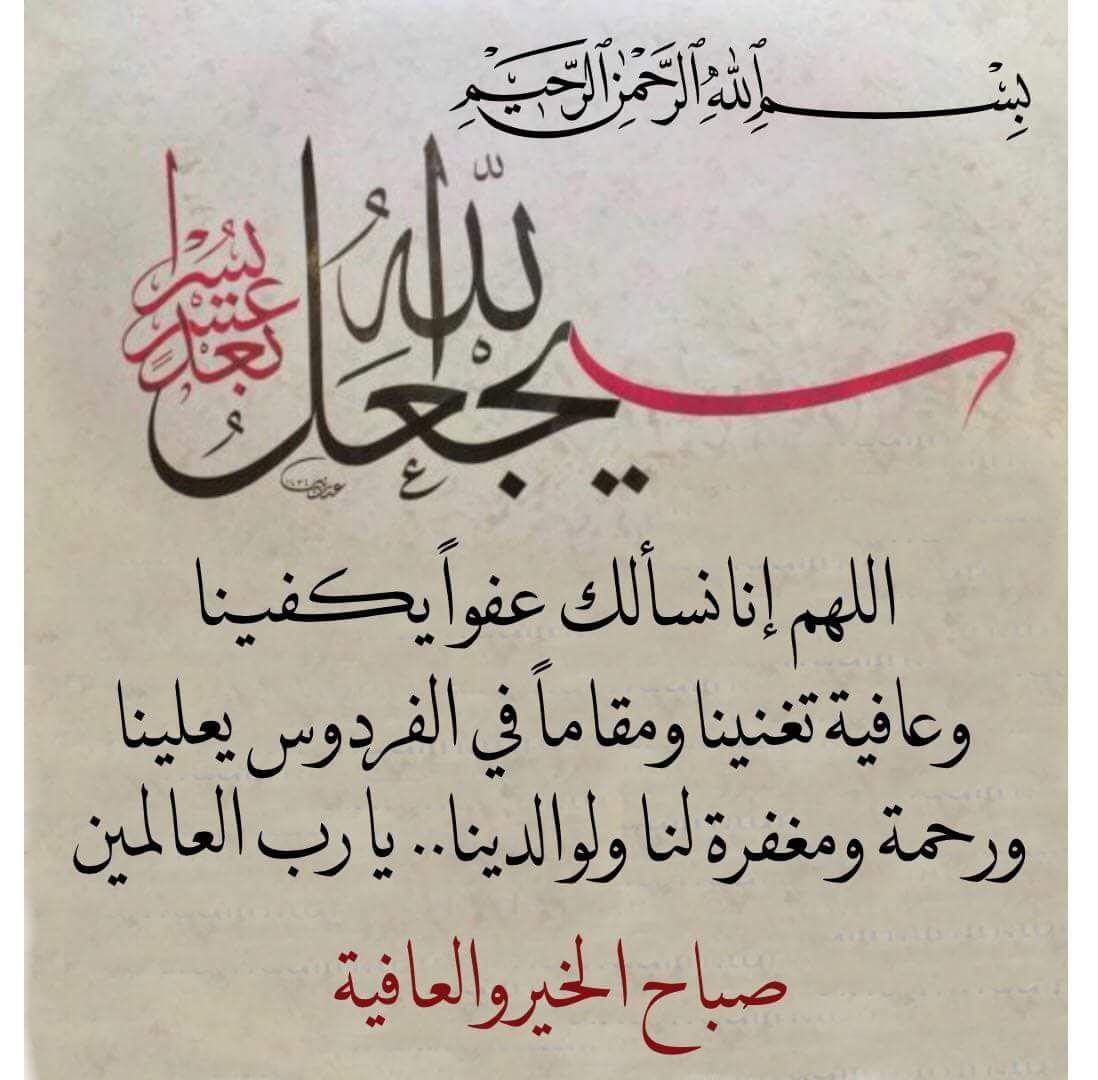 بِسْمِ ٱللَّهِ ٱلرَّحْمَٰنِ ٱلرَّحِيمِ
سيجعل الله بعد عسر يسرا
اللهم إنا نسألك عفواً يكفينا
وعافية تغنينا ومقاماً في الفردوس يعلينا
ورحمة ومغفرة لنا ولوالدينا.. يا رب العالمين
صباح الخير والعافية